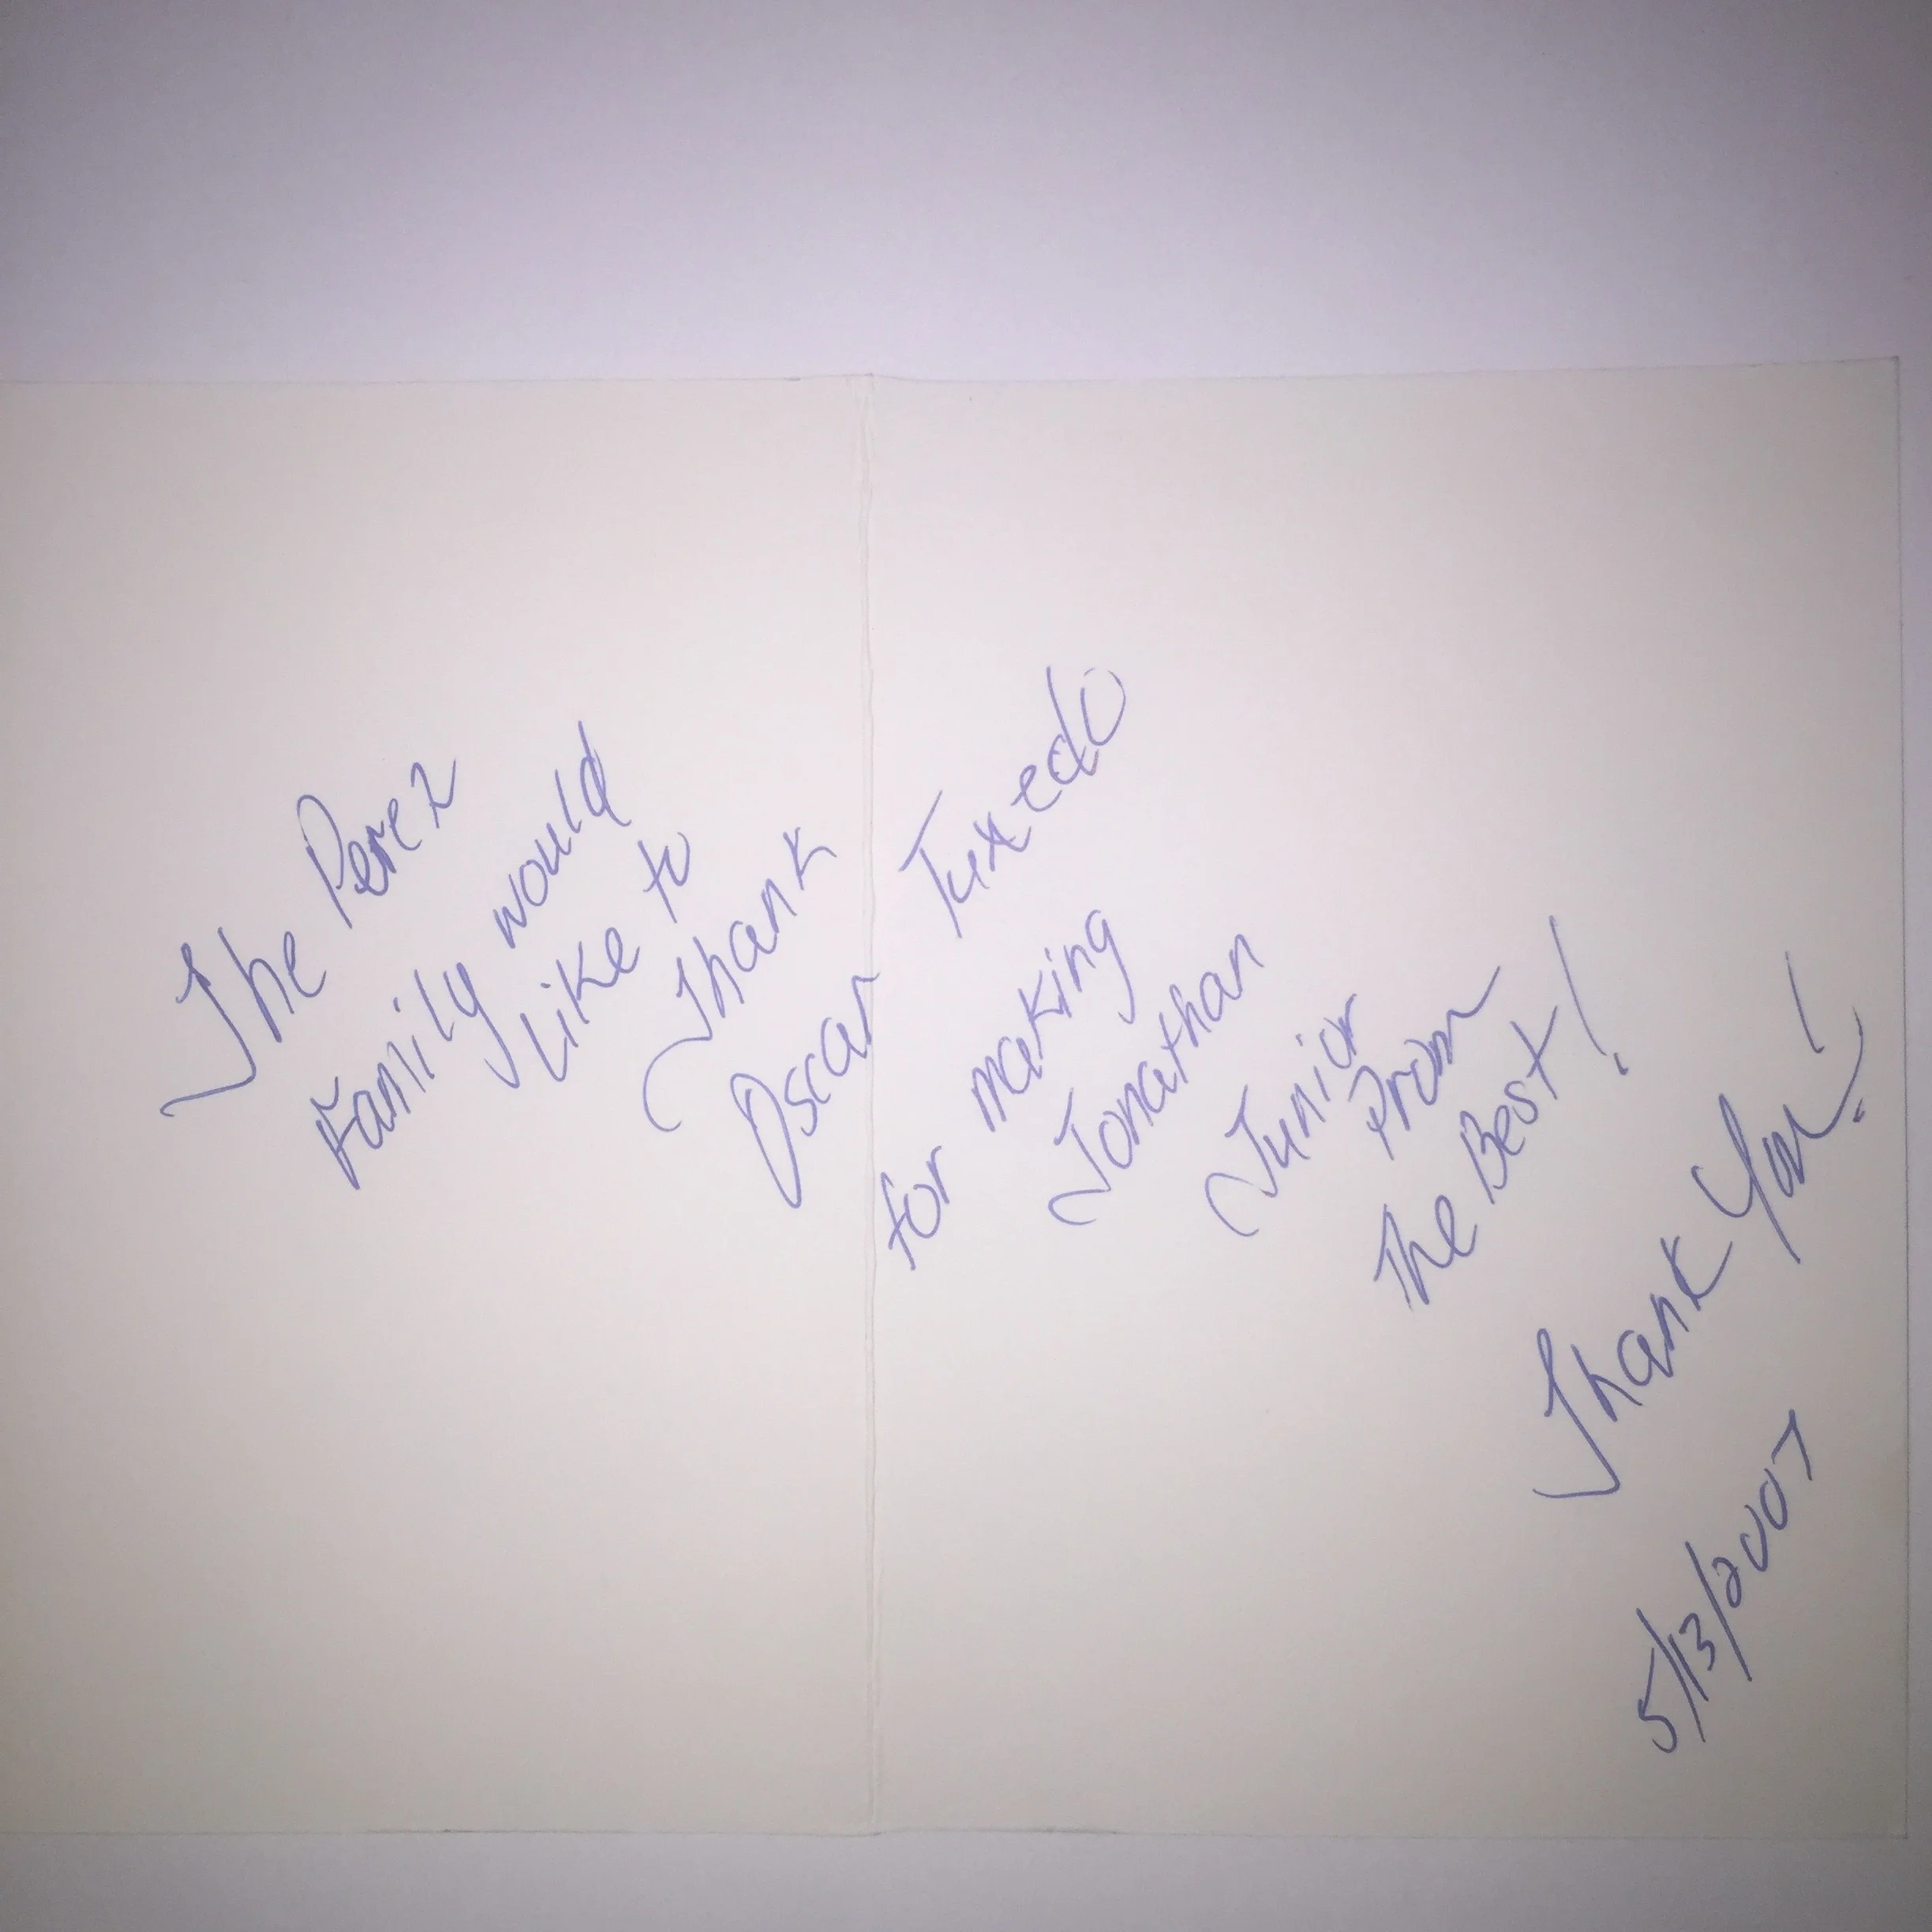 The Perez
Family would
Like to
Thank
Oscar Tuxedo
for making
Jonathan
Junior
Prom
The Best!
Thank You!
5/13/2007